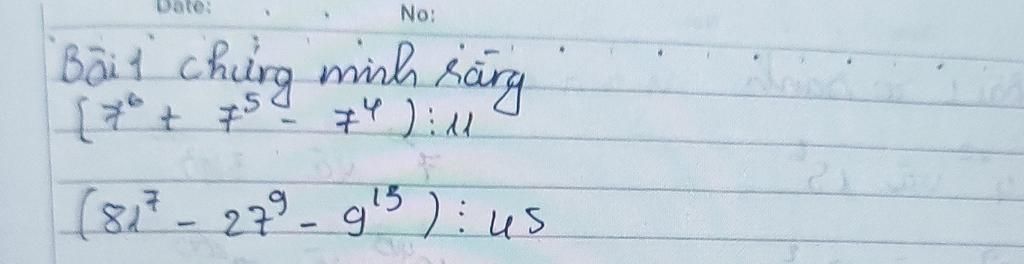 Date: No:
Bài 1 chứng minh rằng
(7⁶ + 7⁵ - 7⁴) ⋮ 11
(81⁷ - 27⁹ - 9¹³) ⋮ 45